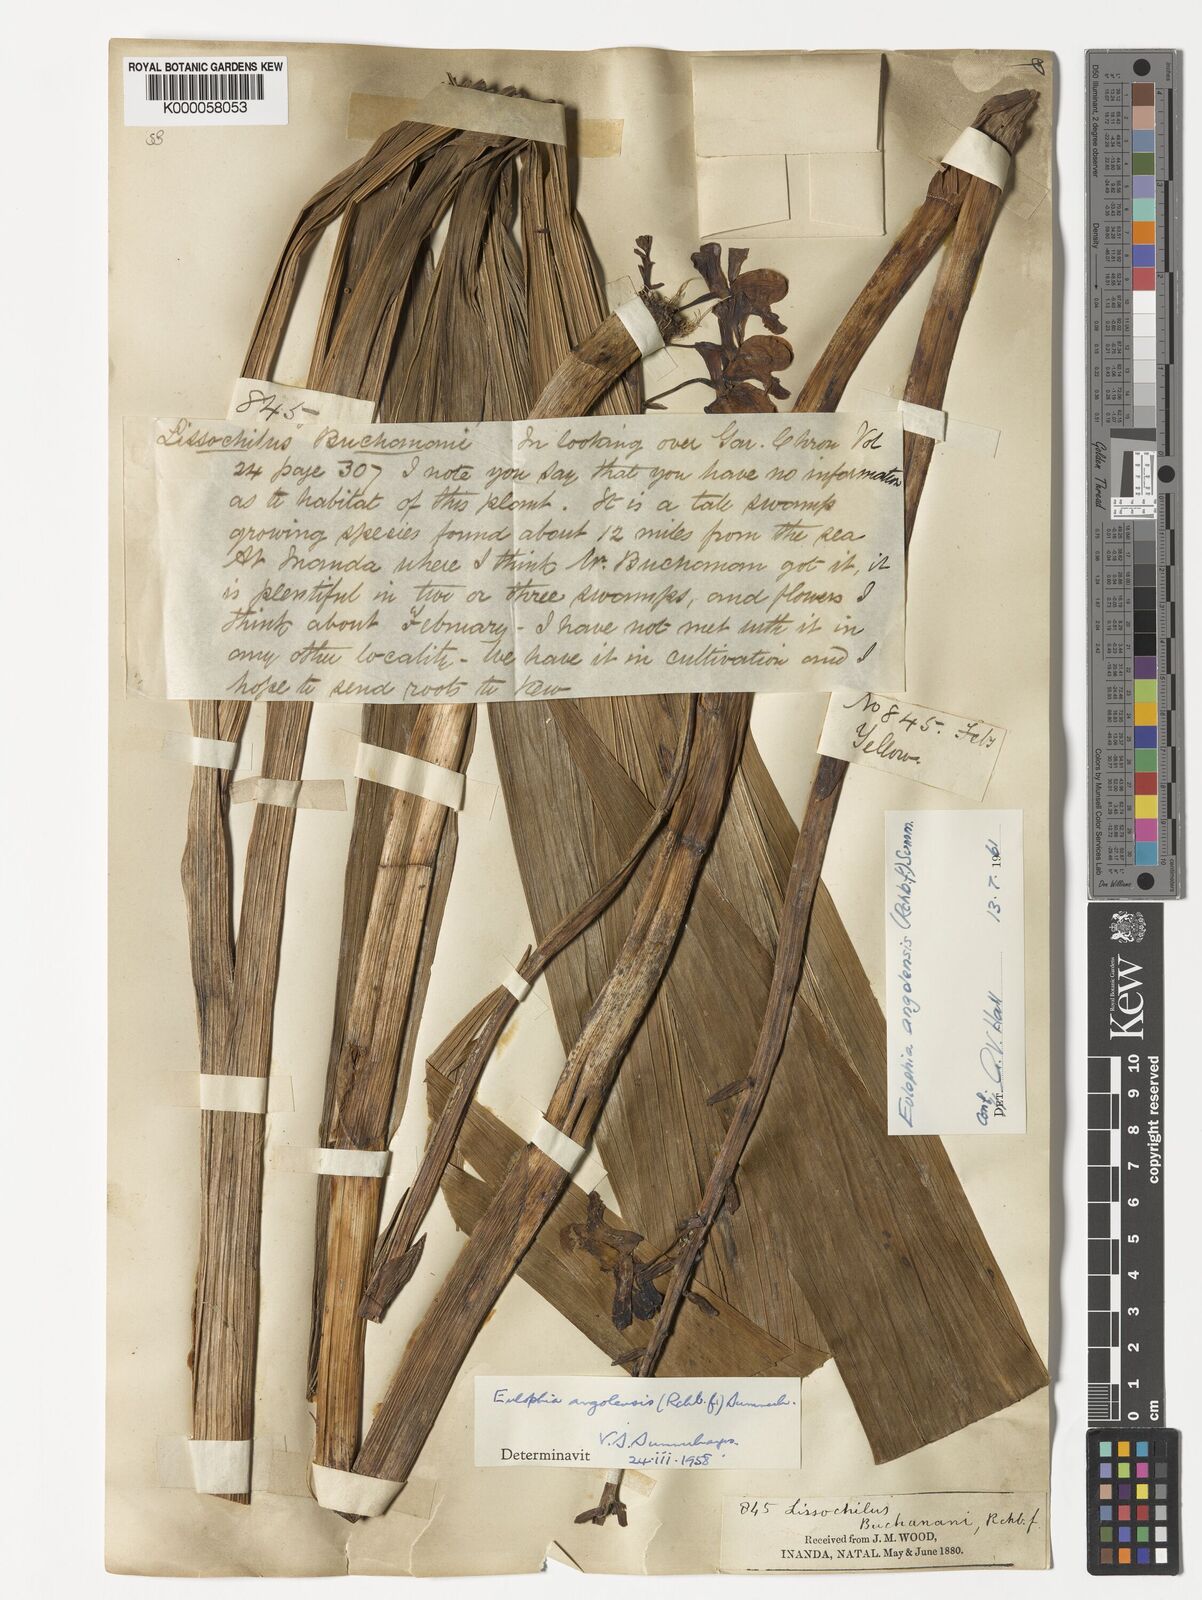 ROYAL BOTANIC GARDENS KEW
K000058053
845
Lissochilus Buchanani In looking over Gar. Chron Vol
24 page 307 I note you say that you have no information
as to habitat of this plant. It is a tall swamp
growing spesies found about 12 miles from the sea
At Inanda where I think Mr. Buchanan got it, it
is plentiful in two or three swamps, and flowers I
think about February - I have not met with it in
any other locality - We have it in cultivation and I
hope to send roots to Kew
No 845. Feby
Yellow.
Eulophia angolensis (Rchb.f) Summ.
Conf.
DET. A. V. Hall 13. 7. 1961
Eulophia angolensis (Rchb. f.) Summerh.
V. S. Summerhayes
Determinavit
24.iii.1958
845 Lissochilus
Buchanani, Rchb. f.
Received from J. M. WOOD,
INANDA, NATAL. May & June 1880.
D50 Illuminant, 2 degree observer
Density
Golden Thread
Colors by Munsell Color Services Lab
Don Williams
Royal Botanic Gardens
Kew
0 1 2 3 4 5 6 7 8 9 10
copyright reserved